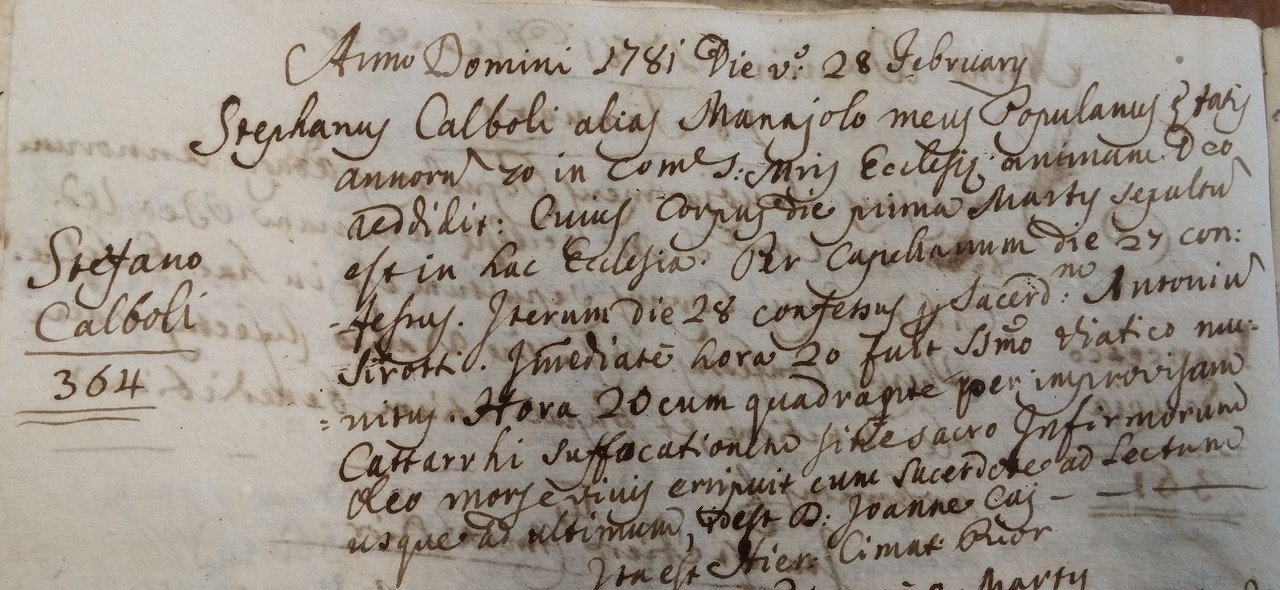 Anno Domini 1781 Die v.o 28 February
Stephanus Calboli alias Manajolo meus Popularius Ętatis
annorũ 70 in Com.e S: Mris Ecclesię animam Deo
reddidit: Cuius Corpus die prima Martÿ sepultũ
est in hac Ecclesia. Per Capellanum die 27 con:
-fessus. Iterum die 28 confessus p Sacerd.m no Antoniũ
Sirotti. Imediatè hora 20 fuit SSmo Viatico mu:
=nitus. Hora 20 cum quadrante per improvisam
Cattarrhi suffocationem sine sacro Infirmorum
Oleo mors è vivis eripuit cum Sacerdote ad Lectum
usque ad ultimum, idest D: Joanne Cas
Ita est Hier: Cimat: Prior
Stefano
Calboli
364
Martÿ